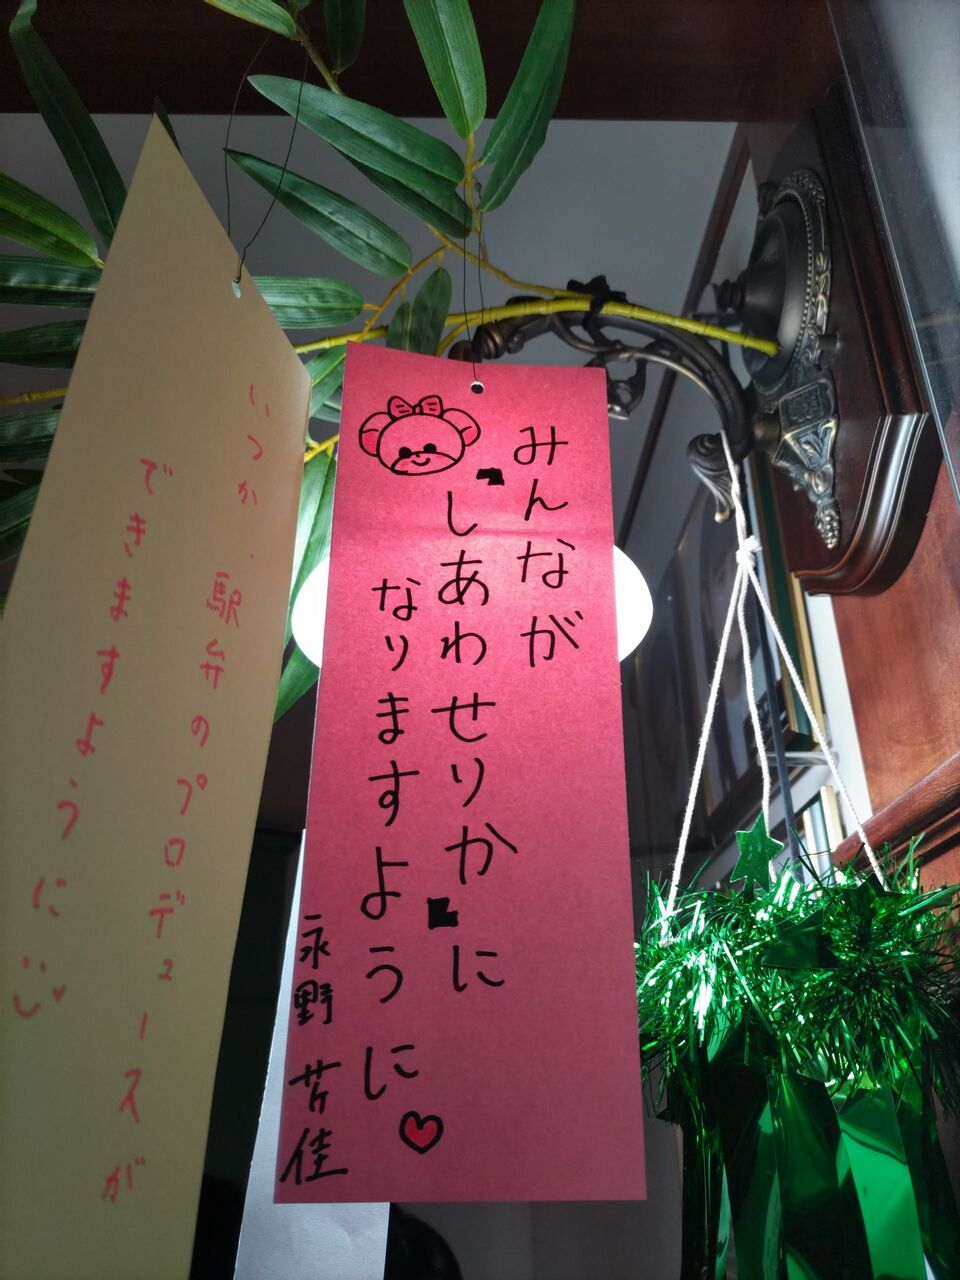 みんなが
「しあわせりか」に
なりますように
永野 芳佳
いつか、
駅弁のプロデュースが
できますように